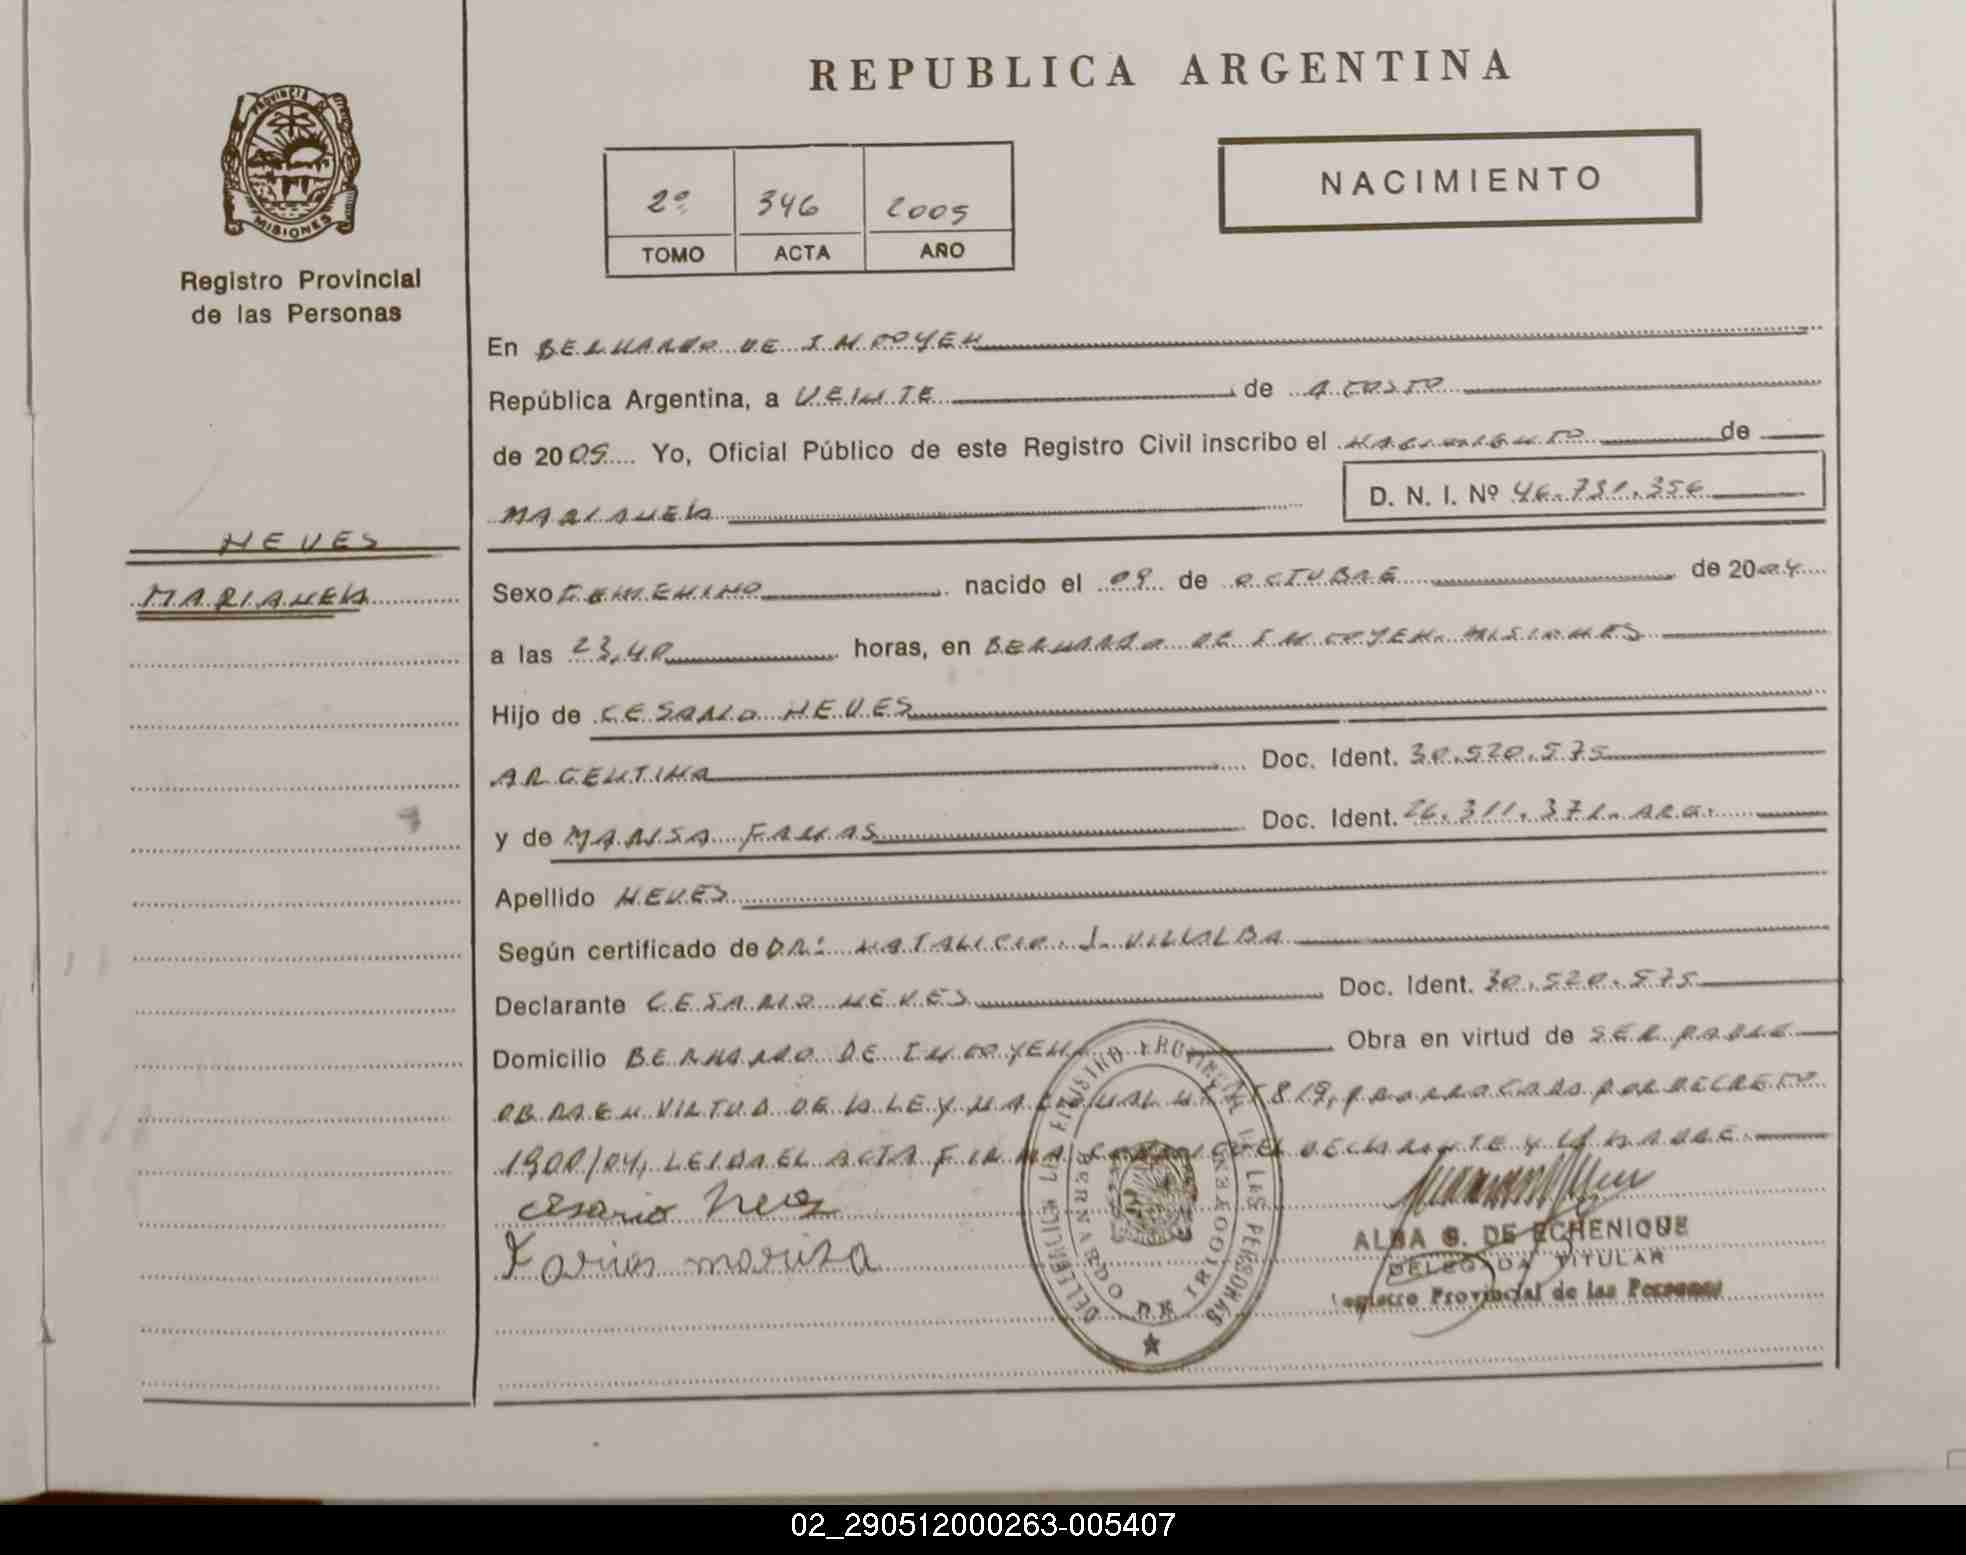 REPUBLICA ARGENTINA
PROVINCIA DE
MISIONES
Registro Provincial
de las Personas
2º 346 2005
TOMO ACTA AÑO
NACIMIENTO
En BERNARDO DE IRIGOYEN
República Argentina, a VEINTE de AGOSTO
de 2005 Yo, Oficial Público de este Registro Civil inscribo el NACIMIENTO de
MARIANELA D. N. I. Nº 46.731.356
NEVES
MARIANELA
Sexo FEMENINO nacido el 09 de OCTUBRE de 2004
a las 23,40 horas, en BERNARDO DE IRIGOYEN. MISIONES
Hijo de CESARIO NEVES
ARGENTINA Doc. Ident. 30.520.575
y de MARISA FARIAS Doc. Ident. 26.311.371. ARG.
Apellido NEVES
Según certificado de DR: NATALICIO J. VILLALBA
Declarante CESARIO NEVES Doc. Ident. 30.520.575
Domicilio BERNARDO DE IRIGOYEN Obra en virtud de SER PADRE
OBRA EN VIRTUD DE LA LEY NACIONAL Nº 25819, PRORROGADA POR DECRETO
1900/04, LEIDA EL ACTA FIRMA CONMIGO EL DECLARANTE Y LA MADRE.
Cesario Neves
Farias marisa
DELEGACION DEL REGISTRO PROVINCIAL DE LAS PERSONAS
BERNARDO DE IRIGOYEN
ALBA S. DE ECHENIQUE
DELEGADA TITULAR
Registro Provincial de las Personas
02_290512000263-005407